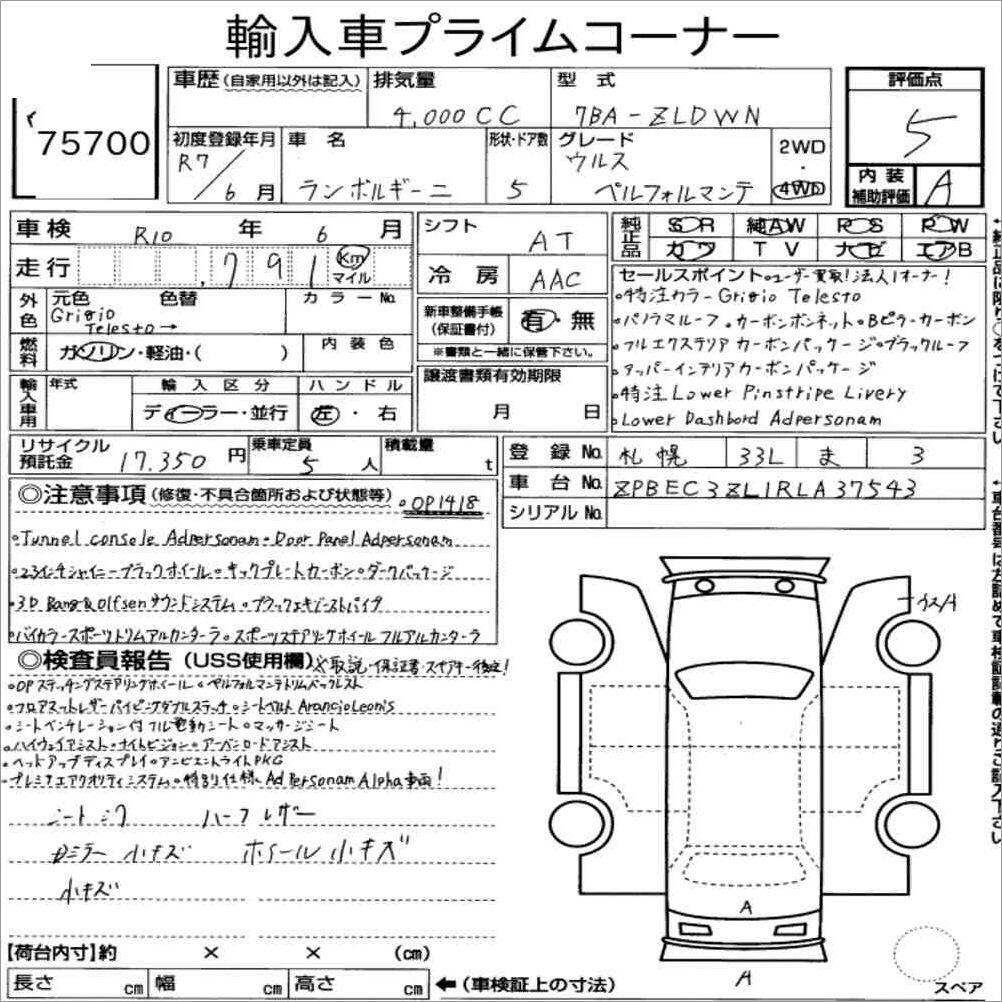 輸入車プライムコーナー
75700
車歴(自家用以外は記入) 排気量 型式 評価点
4,000CC 7BA-ZLDWN 5
初度登録年月 車名 形状・ドア数 グレード 2WD・4WD 内装補助評価 A
R7/6月 ランボルギーニ 5 ウルス ペルフォルマンテ
車検 R10年 6月 シフト AT 純正品 SR 純AW PS PW
カワ TV ナビ エアB
走行 791 Km マイル 冷房 AAC
外色 元色 色替 カラーNo.
Grigio Telesto→
新車整備手帳(保証書付) 有・無
※書類と一緒に保管下さい。
燃料 ガソリン・軽油・( ) 内装色
輸入車用 年式 輸入区分 ハンドル
ディーラー・並行 左・右
譲渡書類有効期限 月 日
セールスポイント。ユーザー買取!法人1オーナー!
。特注カラーGrigio Telesto
。パノラマルーフ。カーボンボンネット。Bピラーカーボン
。フルエクステリアカーボンパッケージ。ブラックルーフ
。アッパーインテリアカーボンパッケージ
。特注Lower Pinstripe Livery
。Lower Dashbord Adpersonam
リサイクル預託金 17.350円 乗車定員 5人 積載量 t
登録No. 札幌 33L ま 3
車台No. ZPBEC3ZL1RLA37543
シリアルNo.
◎注意事項(修復・不具合箇所および状態等)。OP1418
。Tunnel console Adpersonam。Door Panel Adpersonam
。23インチシャイニーブラックホイール。キックプレートカーボン。ダークパッケージ
。3D Bang&Olfsenサウンドシステム。ブラックエキゾーストパイプ
。バイカラースポーツトリムアルカンターラ。スポーツステアリングホイールフルアルカンターラ
◎検査員報告(USS使用欄)※取説・保証書・スペアキー後送!
。OPステッチングステアリングホイール。ペルフォルマンテトリムバックレスト
。フロアマットレザーパイピングダブルステッチ。シートベルトArancioLeonis
。シートベンチレーション付フル電動シート。マッサージシート
。ハイウェイアシスト。ナイトビジョン。アーバンロードアシスト
。ヘッドアップディスプレイ。アンビエントライトPKG
。プレミアエアクオリティシステム。特別仕様Ad Personam Alpha車両!
シートシワ ハーフレザー
Dミラー小キズ ホイール小キズ
小キズ
ウスA
A
A
スペア
【荷台内寸】約 × × (cm)
長さ cm 幅 cm 高さ cm ←(車検証上の寸法)